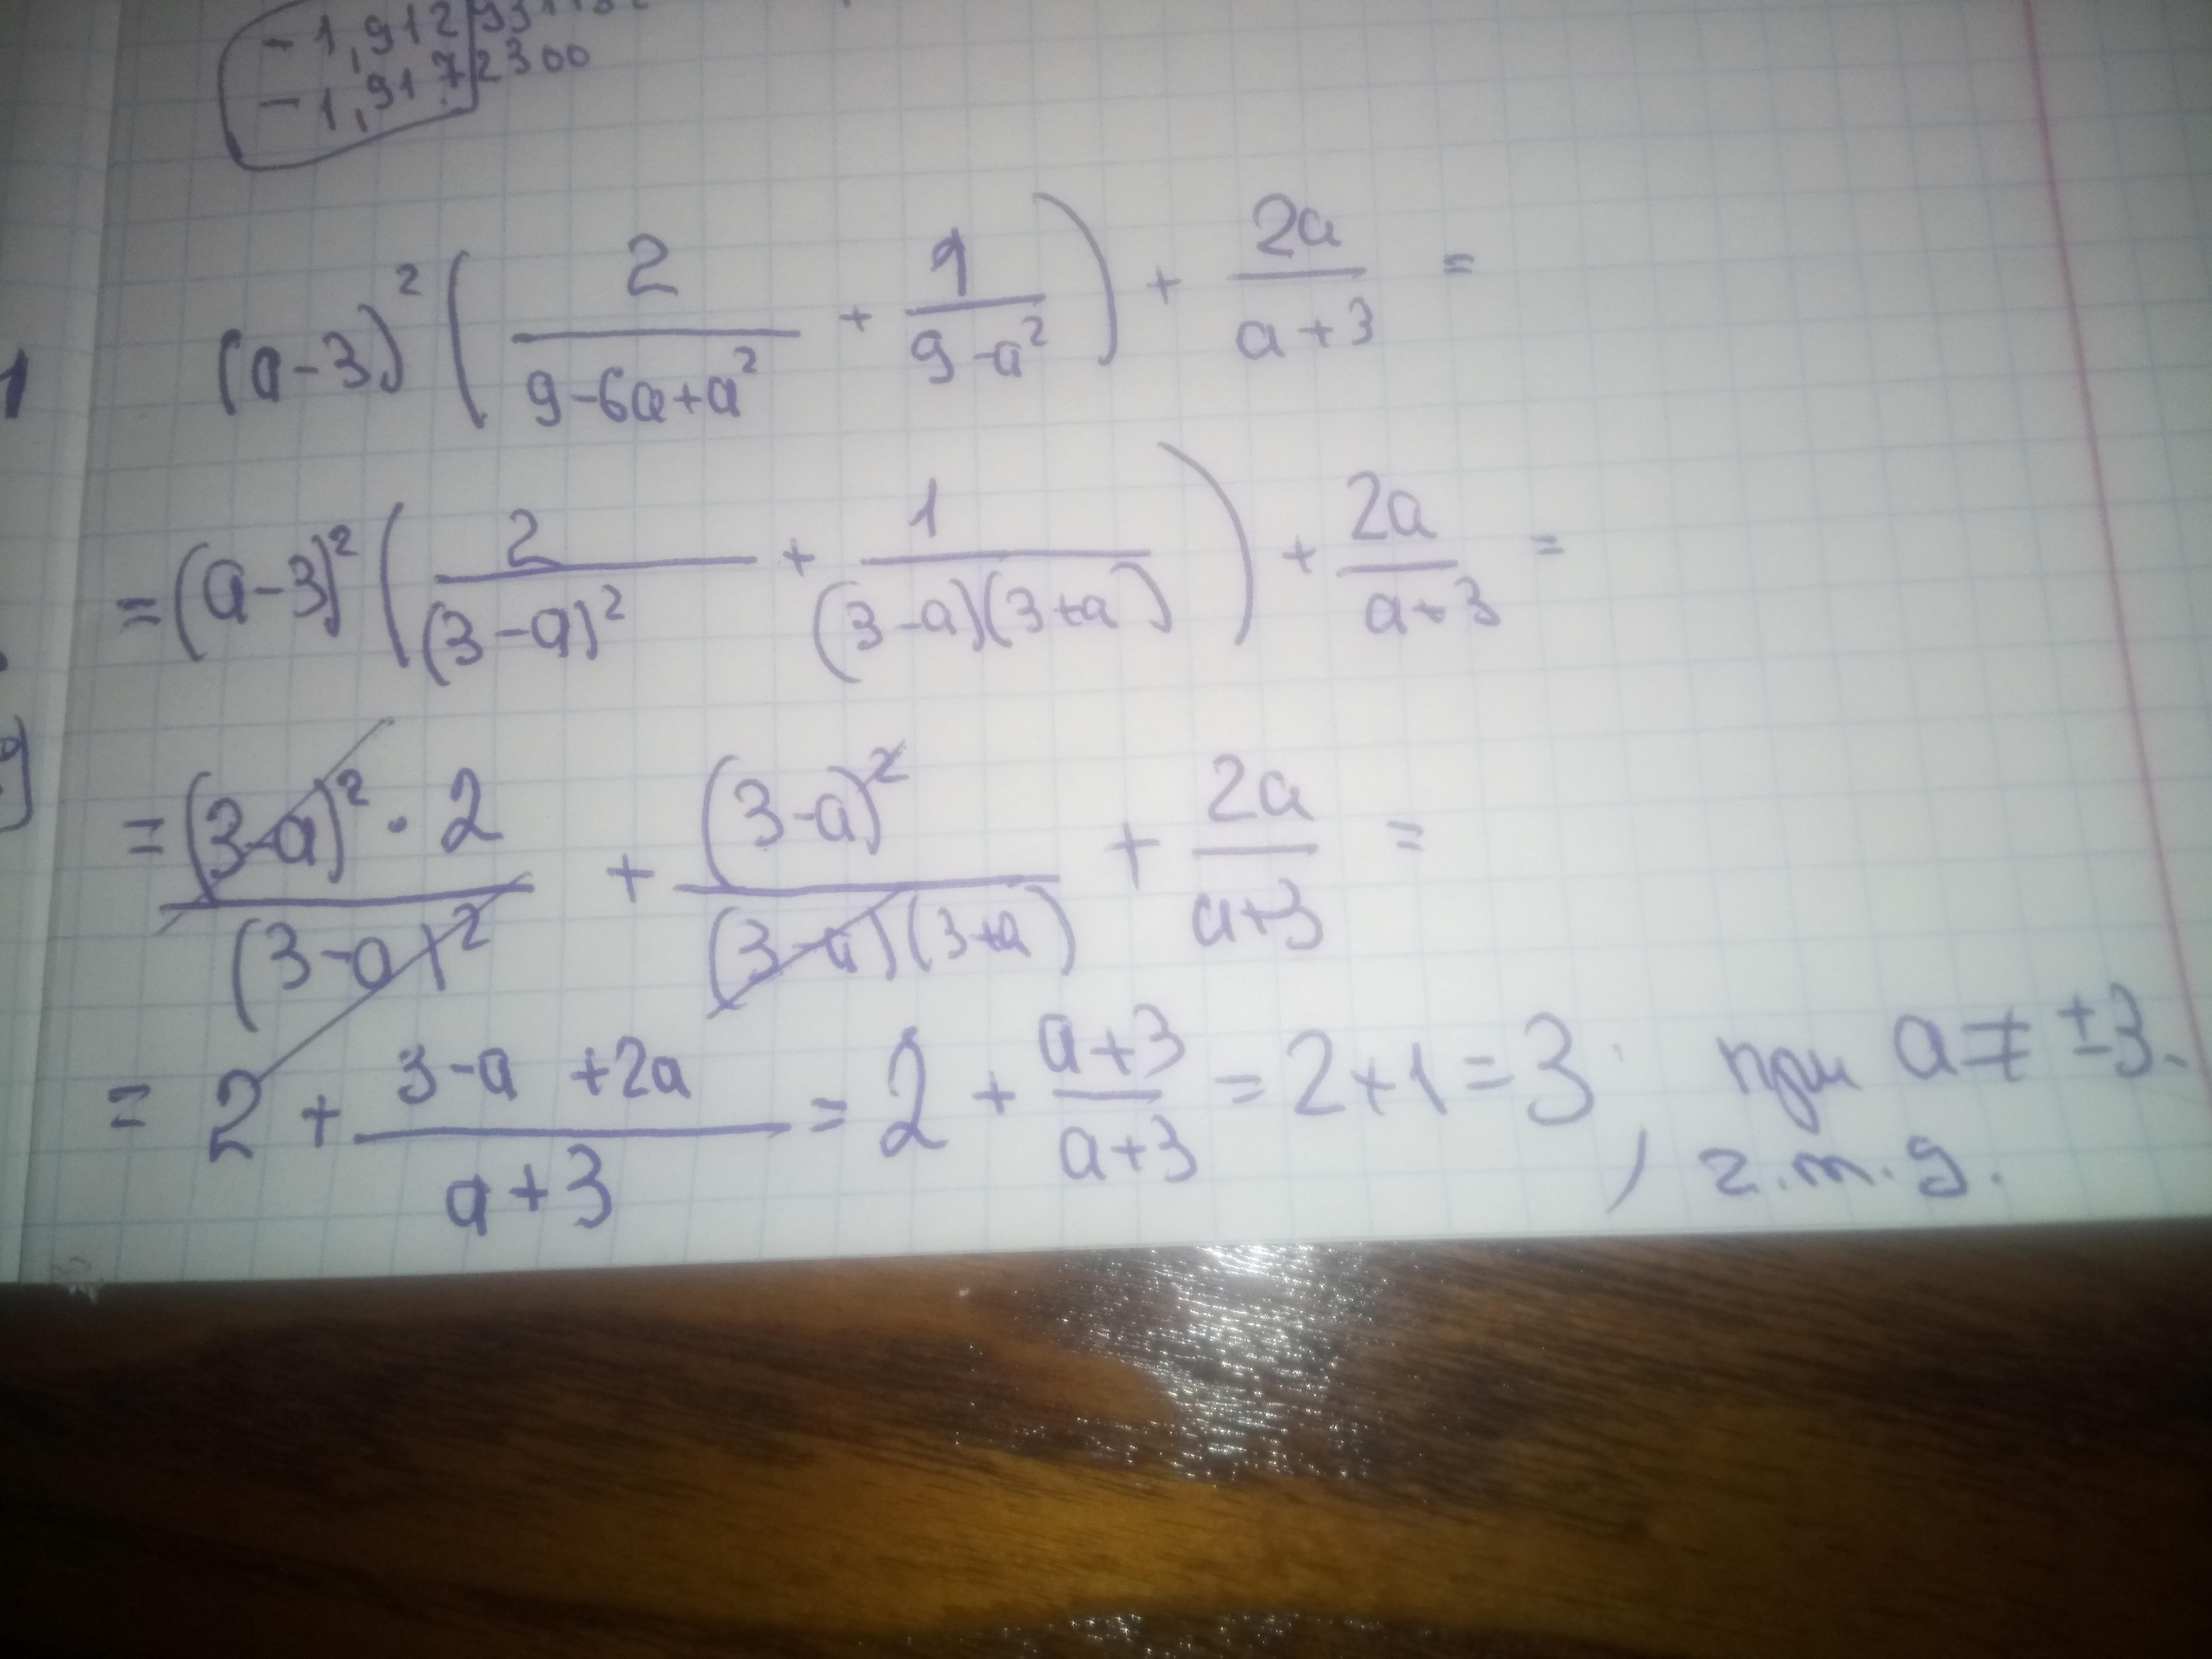 -1,912
-1,9172300
1
(a-3)² ( 2/(9-6a+a²) + 1/(9-a²) ) + 2a/(a+3) =
= (a-3)² ( 2/(3-a)² + 1/((3-a)(3+a)) ) + 2a/(a+3) =
= (3-a)² · 2/(3-a)² + (3-a)²/((3-a)(3+a)) + 2a/(a+3) =
= 2 + (3-a +2a)/(a+3) = 2 + (a+3)/(a+3) = 2+1=3, при a ≠ ±3.
ч.т.д.